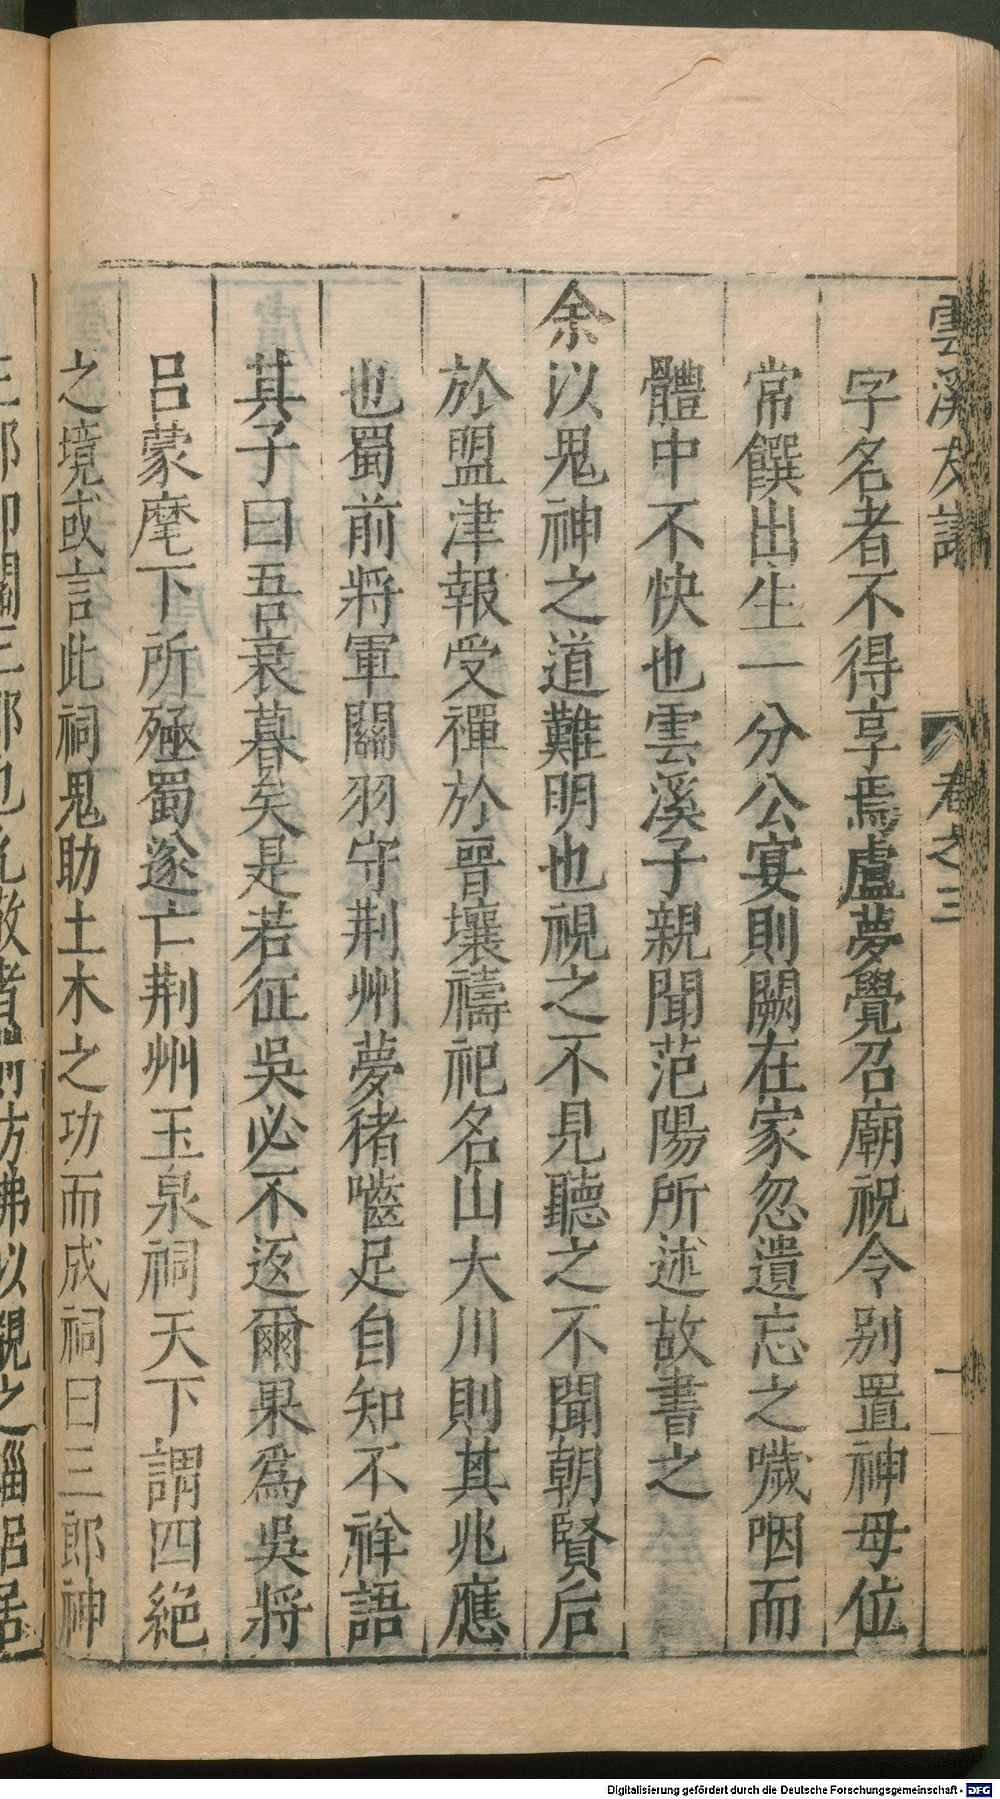 雲溪友議 卷之三 一
字名者不得享焉盧夢覺召廟祝令别置神母位
常饌出生一分公宴則闕在家忽遺忘之噦咽而
體中不快也雲溪子親聞范陽所述故書之
余以鬼神之道難明也視之不見聽之不聞朝賢后
於盟津報受禪於晉壤禱祀名山大川則其兆應
也蜀前將軍關羽守荆州夢猪嚙足自知不祥語
其子曰吾衰暮矣是若征吳必不返爾果爲吳將
呂蒙麾下所殛蜀遂亡荆州玉泉祠天下謂四絶
之境或言此祠鬼助土木之功而成祠曰三郎神
三郎即關三郎也允敬者則彷彿以覩之緇侶居
Digitalisierung gefördert durch die Deutsche Forschungsgemeinschaft - DFG